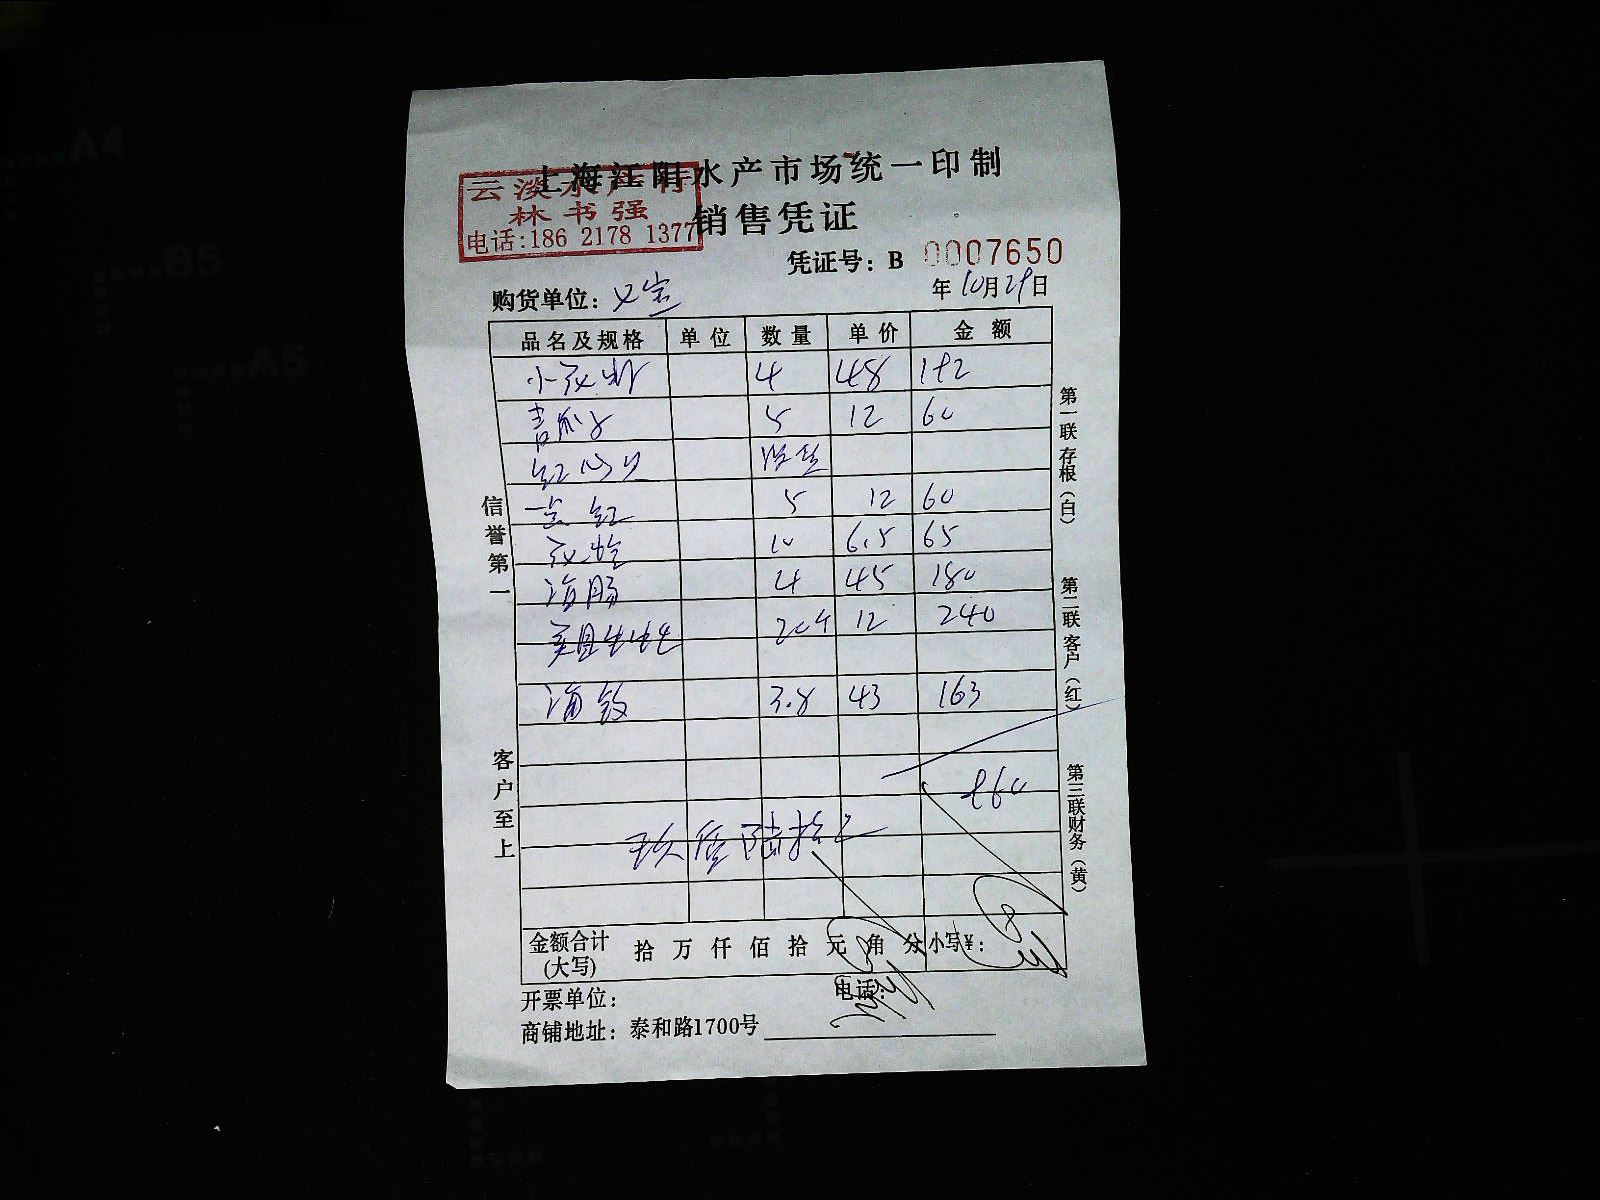 上海江阳水产市场统一印制
云淡水产行
林书强
电话:186 2178 1377
销售凭证
凭证号: B 0007650
购货单位:
年10月29日
品名及规格 单位 数量 单价 金额
4 48 192
5 12 60
5 12 60
10 6.5 65
海肠 4 45 180
12 240
3.8 43 163
960
玖佰陆拾元
金额合计(大写) 拾 万 仟 佰 拾 元 角 分 小写¥:
开票单位: 电话:
商铺地址: 泰和路1700号
信誉第一
客户至上
第一联存根(白)
第二联客户(红)
第三联财务(黄)
A4
B5
A5